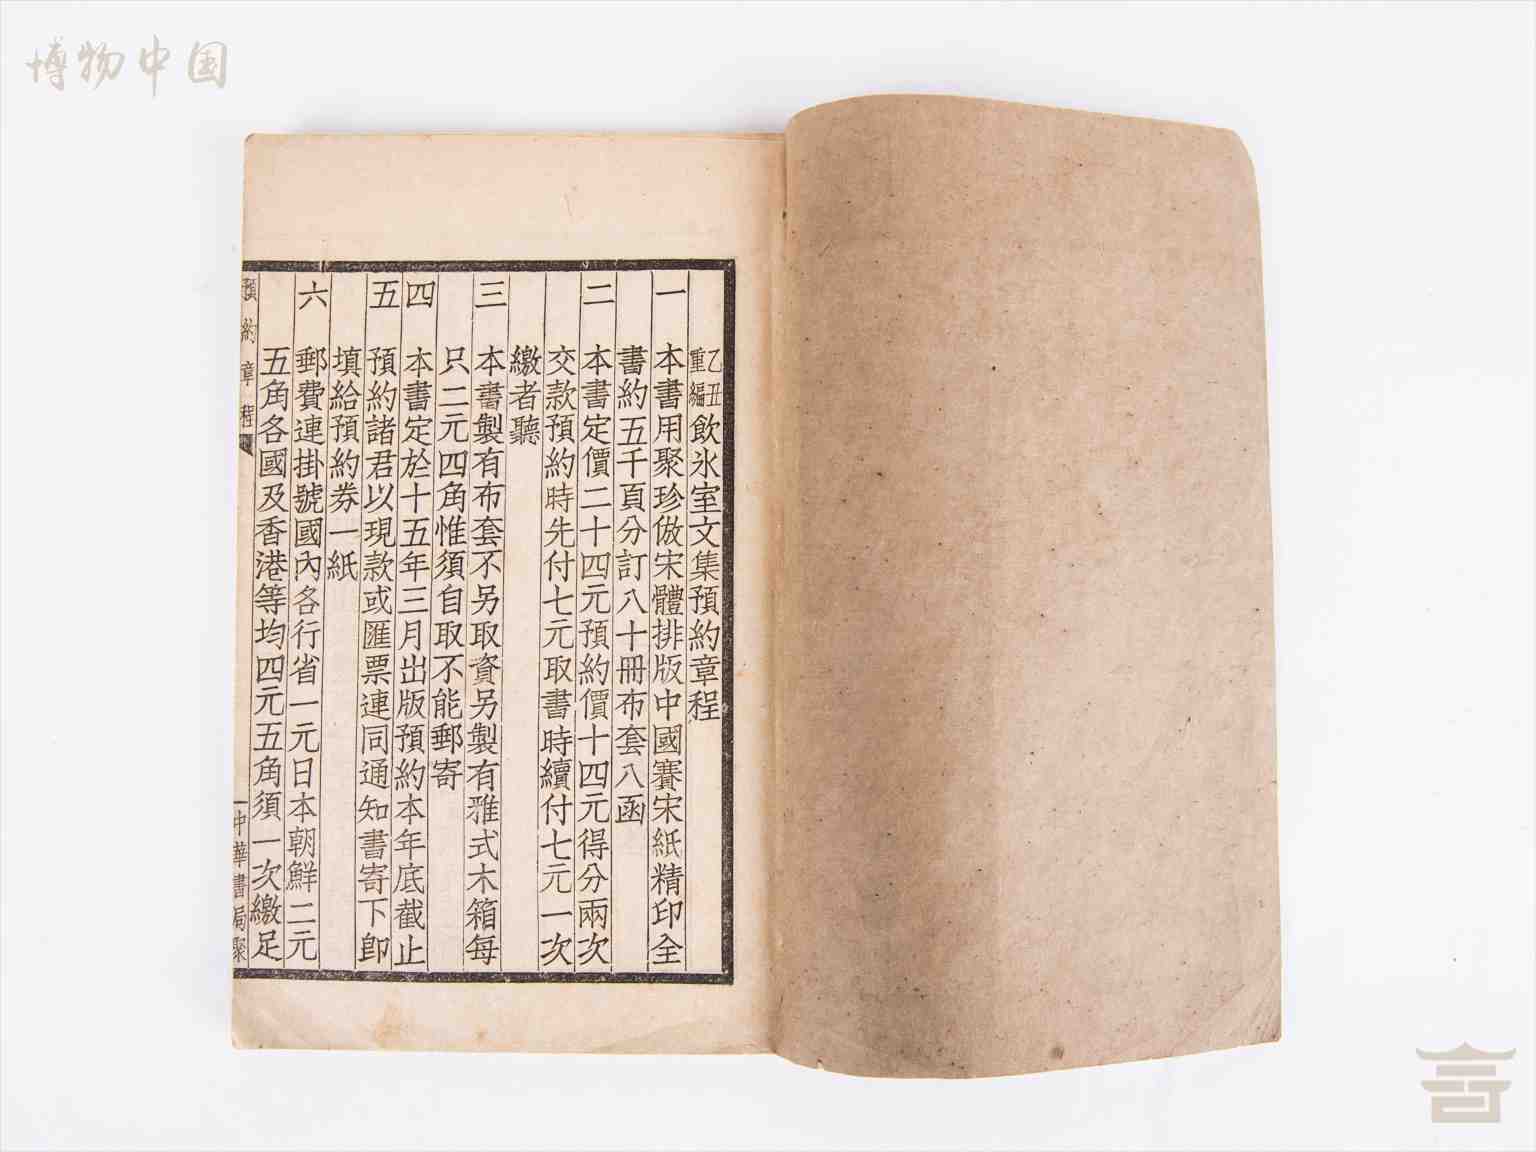 博物中国
乙丑重編飲氷室文集預約章程
一 本書用聚珍倣宋體排版中國賽宋紙精印全
書約五千頁分訂八十冊布套八函
二 本書定價二十四元預約價十四元得分兩次
交款預約時先付七元取書時續付七元一次
繳者聽
三 本書製有布套不另取資另製有雅式木箱每
只二元四角惟須自取不能郵寄
四 本書定於十五年三月出版預約本年底截止
五 預約諸君以現款或匯票連同通知書寄下卽
填給預約券一紙
六 郵費連掛號國內各行省一元日本朝鮮二元
五角各國及香港等均四元五角須一次繳足
預約章程
一中華書局聚